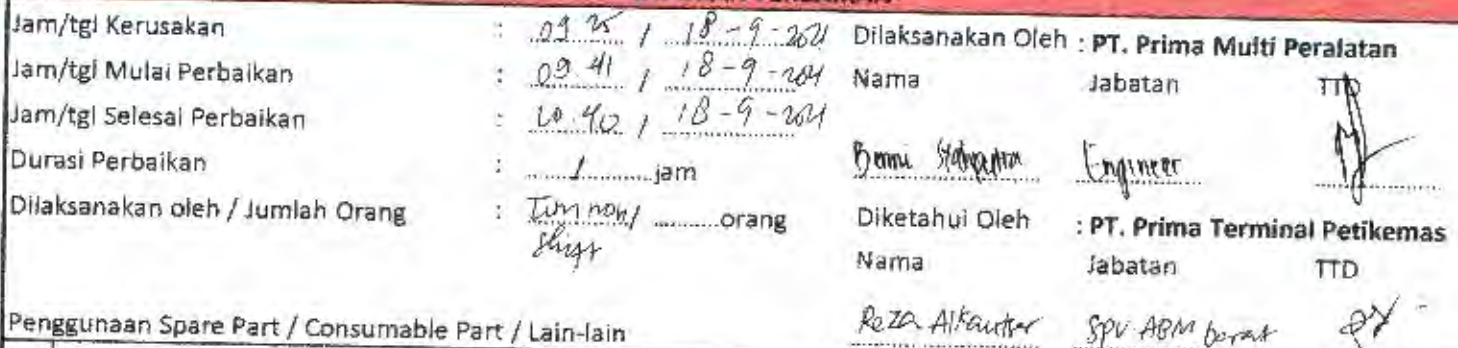 Jam/tgl Kerusakan : 09 25 / 18-9-2021
Jam/tgl Mulai Perbaikan : 09.41 / 18-9-2021
Jam/tgl Selesai Perbaikan : 10.40 / 18-9-2021
Durasi Perbaikan : 1 jam
Dilaksanakan oleh / Jumlah Orang : Tim non / orang
Shift
Penggunaan Spare Part / Consumable Part / Lain-lain
Dilaksanakan Oleh : PT. Prima Multi Peralatan
Nama Jabatan TTD
Engineer
Diketahui Oleh : PT. Prima Terminal Petikemas
Nama Jabatan TTD
Reza Alkautsar SPV ABM barat